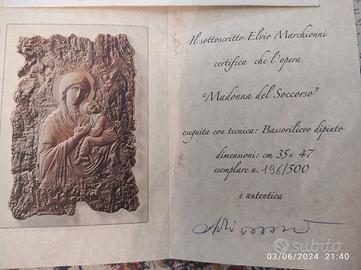 Il sottoscritto Elvio Marchionni
certifica che l'opera
"Madonna del Soccorso"
eseguita con tecnica: Bassorilievo dipinto
dimensioni: cm 35 x 47
esemplare n. 196/500
è autentica
subito
03/06/2024 21:40